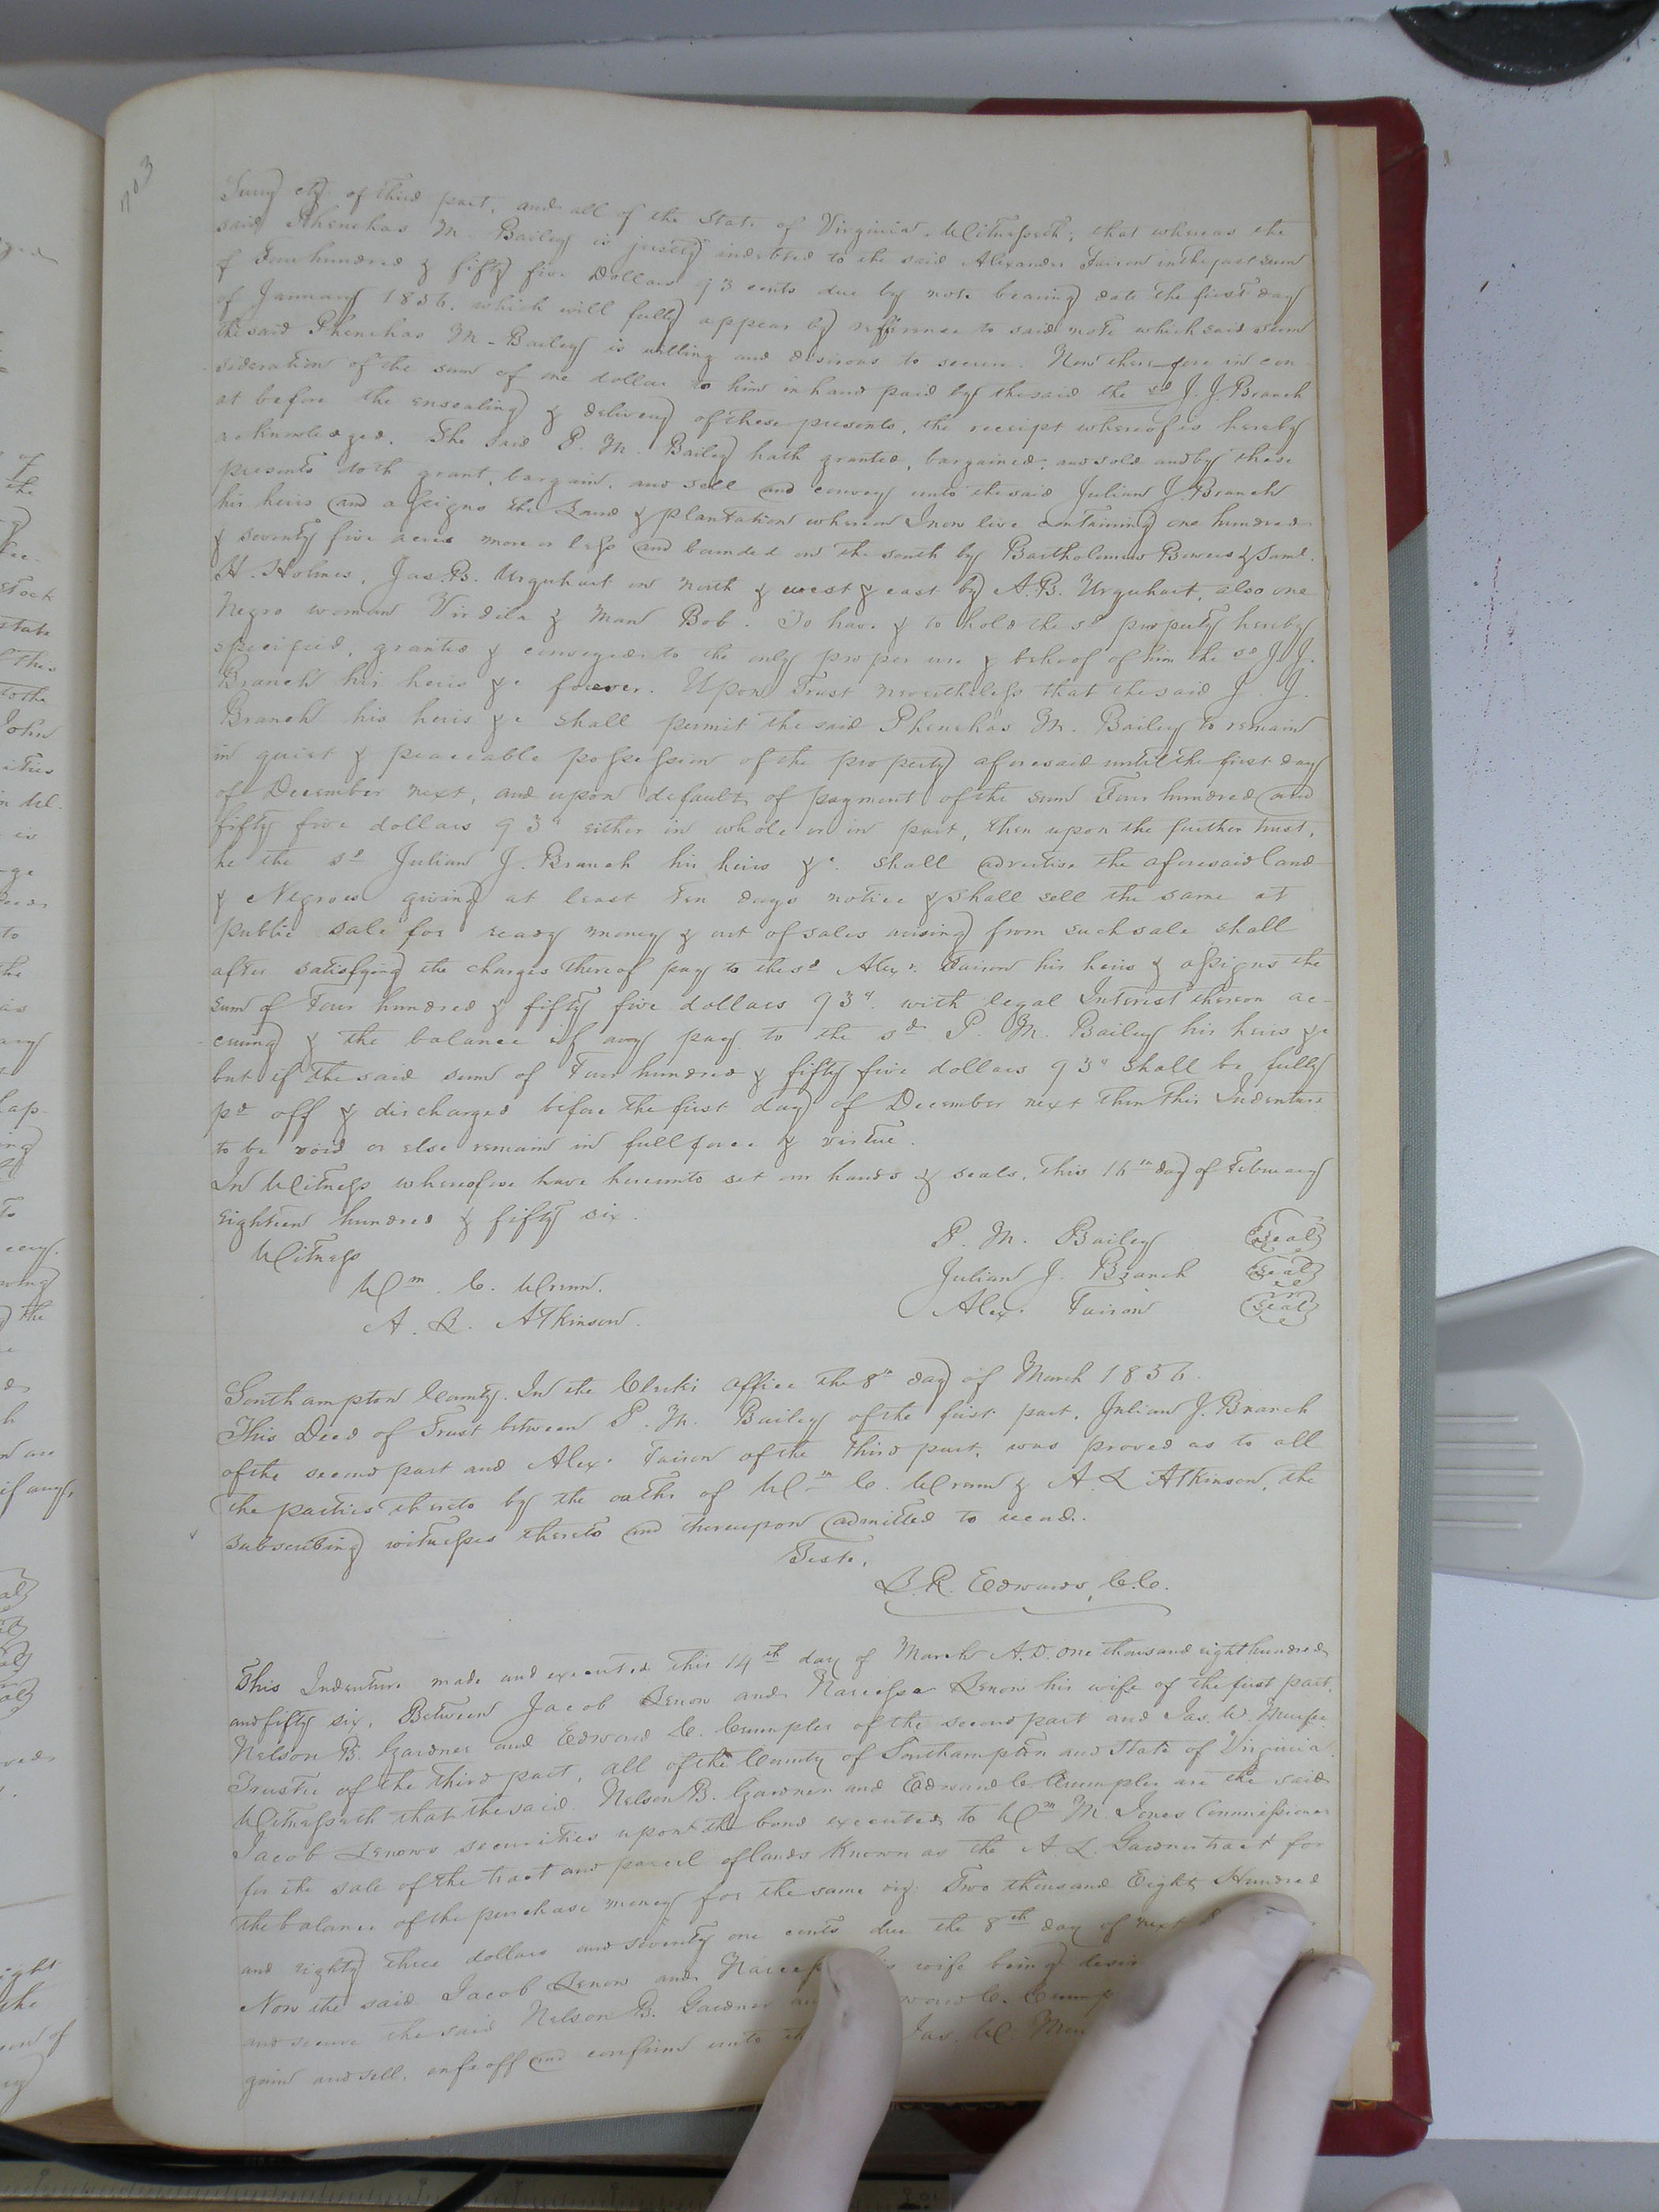 703
Surry cty of third part, and all of the State of Virginia. Witnesseth; that whereas the
said Phenehas M. Bailey is justly indebted to the said Alexander Fairon in the just sum
of Four hundred & fifty five Dollars 93 cents due by note bearing date the first day
of January 1856. which will fully appear by reference to said note which said sum
the said Phenehas M. Bailey is willing and desirous to secure. Now therefore in con
sideration of the sum of one dollar to him in hand paid by the said the sd J. J. Branch
at before the ensealing & delivery of these presents, the receipt whereof is hereby
acknowledged. The said P. M. Bailey hath granted, bargained, and sold and by these
presents doth grant, bargain, and sell and convey unto the said Julian J. Branch
his heirs and assigns the Land & plantation whereon I now live containing one hundred
& seventy five acres more or less and bounded on the south by Bartholomew Bowers & Saml.
H. Holmes, Jas. B. Urquhart on north & west & east by A. B. Urquhart, also one
Negro woman & man Bob. To have & to hold the sd property hereby
specified, granted & conveyed to the only proper use & behoof of him the sd J. J.
Branch his heirs &c forever. Upon Trust nevertheless that the said J. J.
Branch his heirs &c shall permit the said Phenehas M. Bailey to remain
in quiet & peaceable possession of the property aforesaid until the first day
of December next, and upon default of payment of the sum Four hundred and
fifty five dollars 93" either in whole or in part, then upon the further trust,
he the sd Julian J. Branch his heirs &c. shall advertise the aforesaid land
& Negroes giving at least ten days notice & shall sell the same at
public sale for ready money & out of sales arising from such sale shall
after satisfying the charges thereof pay to the sd Alexr. Fairon his heirs & assigns the
sum of Four hundred & fifty five dollars 93". with legal Interest thereon ac-
cruing & the balance if any pay to the sd P. M. Bailey his heirs &c
but if the said sum of Four hundred & fifty five dollars 93" shall be fully
pd off & discharged before the first day of December next then this Indenture
to be void or else remain in full force & virtue.
In Witness whereof we have hereunto set our hands & seals, this 16th day of February
eighteen hundred & fifty six.
Witness
P. M. Bailey Seal
Wm. C. Wrenn.
Julian J. Branch Seal
A. L. Atkinson.
Alex. Fairon Seal
Southampton County. In the Clerk's office the 8th day of March 1856.
This Deed of Trust between P. M. Bailey of the first part, Julian J. Branch
of the second part and Alex. Fairon of the third part, was proved as to all
the parties thereto by the oaths of Wm C. Wrenn & A. L Atkinson, the
subscribing witnesses thereto and thereupon admitted to record.
Teste,
L. R. Edwards, C.C.
This Indenture made and executed this 14th day of March A.D. one thousand eight hundred
and fifty six, Between Jacob Lenow and Narcissa Lenow his wife of the first part,
Nelson B. Gardner and Edward C. Crumpler of the second part and Jas. W. Murfee
Trustee of the third part, all of the County of Southampton and State of Virginia.
Witnesseth that the said Nelson B. Gardner and Edward C Crumpler are the said
Jacob Lenows securities upon the bond executed to Wm M. Jones Commissioner
for the sale of the tract and parcel of lands known as the A L. Gardner tract for
the balance of the purchase money for the same viz: Two thousand Eight Hundred
and eighty three dollars and seventy one cents due the 8th day of next
Now the said Jacob Lenow and wife being
and secure the said Nelson B. Gardner
gain and sell, enfeoff and confirm unto Jas. W.